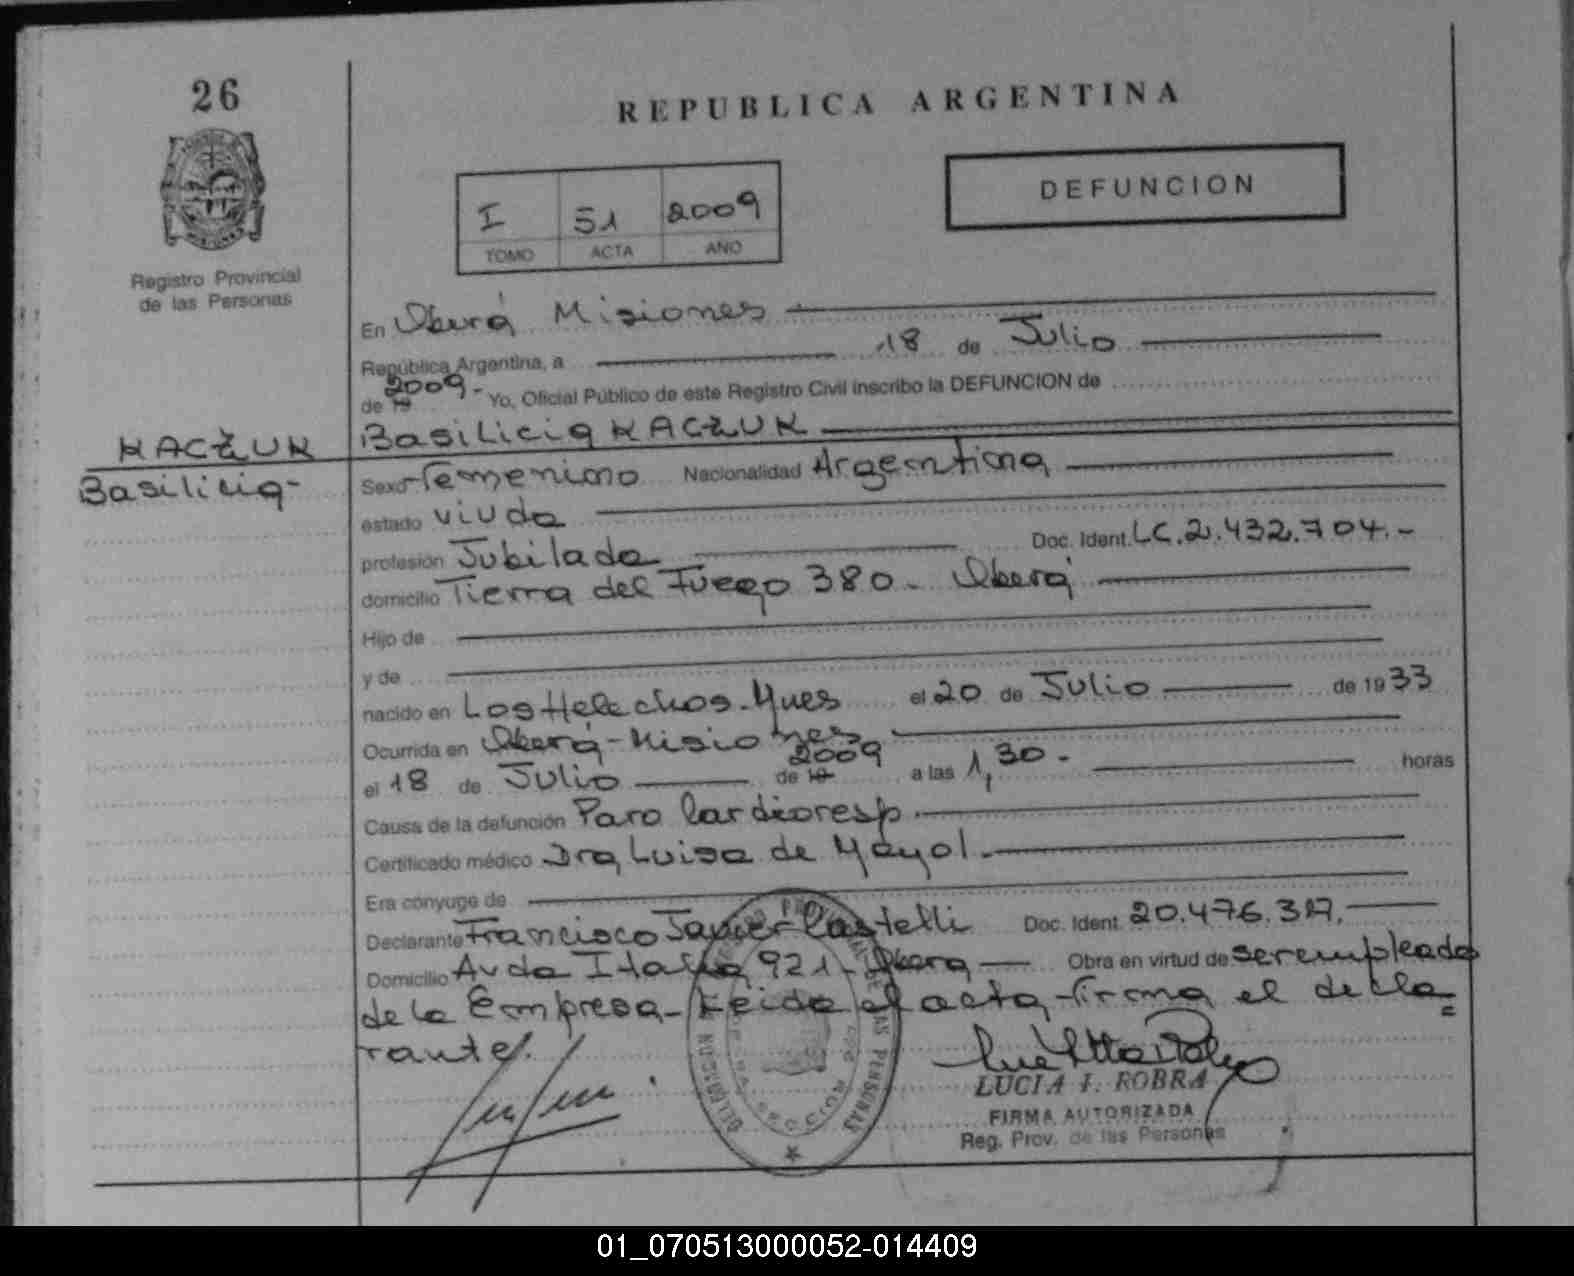 26
REPUBLICA ARGENTINA
DEFUNCION
I 51 2009
TOMO ACTA AÑO
Registro Provincial
de las Personas
En Oberá Misiones
República Argentina, a 18 de Julio
de 19 2009.- Yo, Oficial Público de este Registro Civil inscribo la DEFUNCION de
KACZUK
Basilicia KACZUK
Basilicia-
Sexo Femenino Nacionalidad Argentina
estado viuda
profesión Jubilada Doc. Ident. LC.2.432.704.-
domicilio Tierra del Fuego 380- Oberá
Hijo de
y de
nacido en Los Helechos-Mnes el 20 de Julio de 1933
Ocurrida en Oberá-Misiones
el 18 de Julio de 19 2009 a las 1,30- horas
Causa de la defunción Paro Cardioresp
Certificado médico Dra Luisa de Mayol-
Era cónyuge de
Declarante Francisco Javier Castelli Doc. Ident. 20.476.317.
Domicilio Avda Italia 921- Oberá Obra en virtud de ser empleado
de la Empresa- Leida el acta firma el decla=
rante.
LUCIA I. ROBRA
FIRMA AUTORIZADA
Reg. Prov. de las Personas
01_070513000052-014409